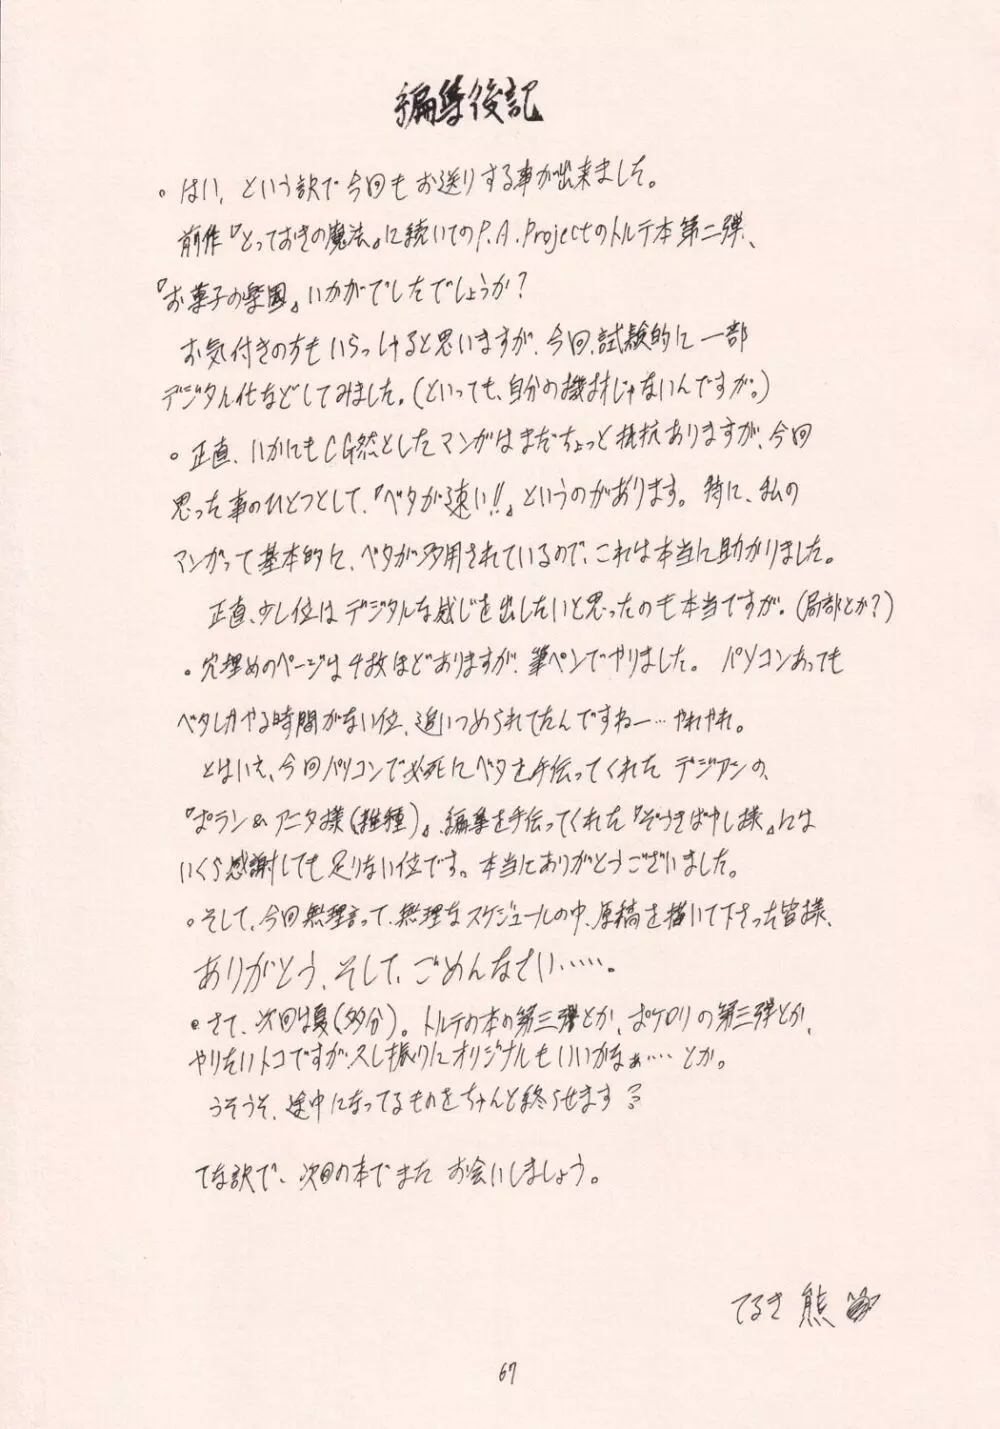 編集後記
。はい、という訳で今回もお送りする事が出来ました。
前作『とっておきの魔法』に続いてのP.A.Projectのトルテ本第二弾、
『お菓子の楽園』いかがでしたでしょうか?
お気付きの方もいらっしゃると思いますが、今回、試験的に一部
デジタル化などしてみました。(といっても、自分の機材じゃないんですが。)
。正直、いかにもCG然としたマンガはまだちょっと抵抗ありますが、今回
思った事のひとつとして、『ベタが速い!!』というのがあります。特に、私の
マンガって基本的に、ベタが多用されているので、これは本当に助かりました。
正直、少し位はデジタルな感じを出したいと思ったのも本当ですが。(局部とか?)
。穴埋めのページは4枚ほどありますが、筆ペンでやりました。パソコンあっても
ベタしかやる時間がない位、追いつめられてたんですねー…やれやれ。
とはいえ、今回パソコンで必死にベタを手伝ってくれたデジアシの、
『ポラン&アニタ様(雑種)』、編集を手伝ってくれた『ぞうきばやし様』には
いくら感謝しても足りない位です。本当にありがとうございました。
。そして、今回無理言って、無理なスケジュールの中、原稿を描いて下さった皆様、
ありがとう、そして、ごめんなさい……。
。さて、次回は夏(多分)。トルテの本の第三弾とか、ポケロリの第三弾とか、
やりたいトコですが、久し振りにオリジナルもいいかなぁ……とか。
うそうそ、途中になってるものをちゃんと終らせます?
てな訳で、次回の本でまたお会いしましょう。
てるき熊
67